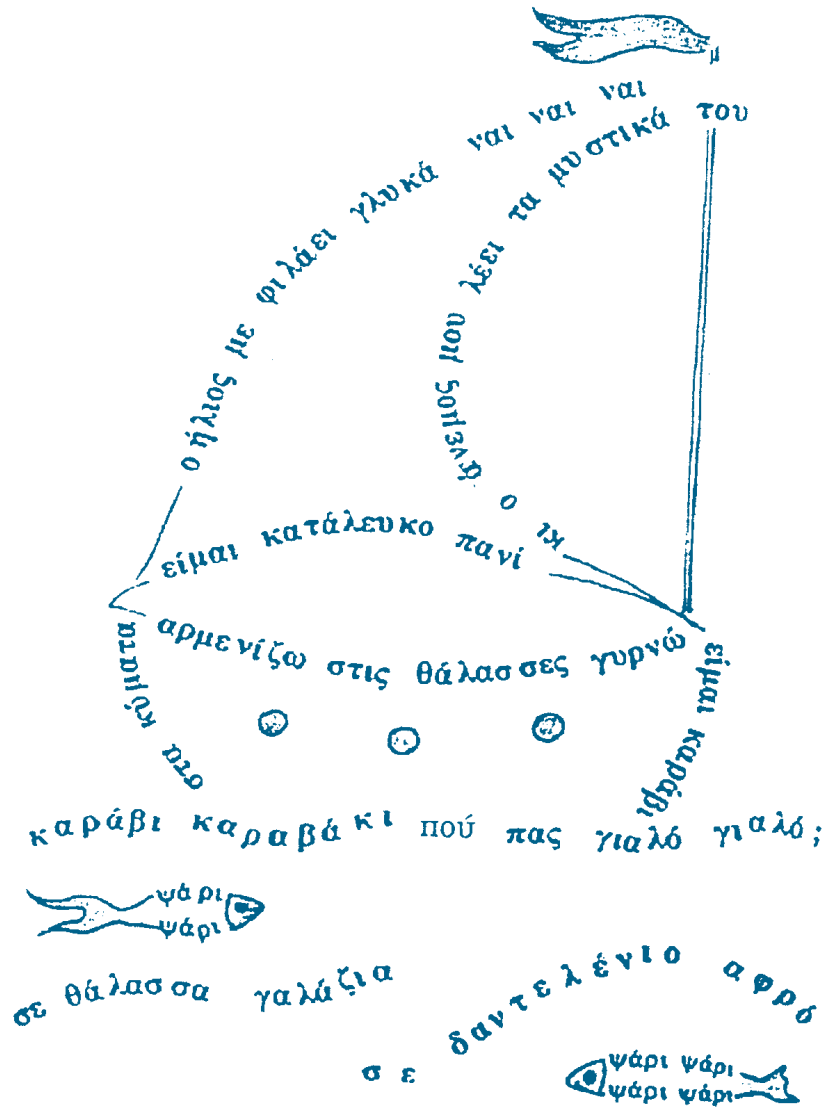 μ
ο ήλιος με φιλάει γλυκά ναι ναι ναι
κι ο άνεμος μου λέει τα μυστικά του
είμαι κατάλευκο πανί
αρμενίζω στις θάλασσες γυρνώ
στα κύματα
είμαι καράβι
καράβι καραβάκι πού πας γιαλό γιαλό;
ψάρι
ψάρι
σε θάλασσα γαλάζια
σε δαντελένιο αφρό
ψάρι ψάρι
ψάρι ψάρι